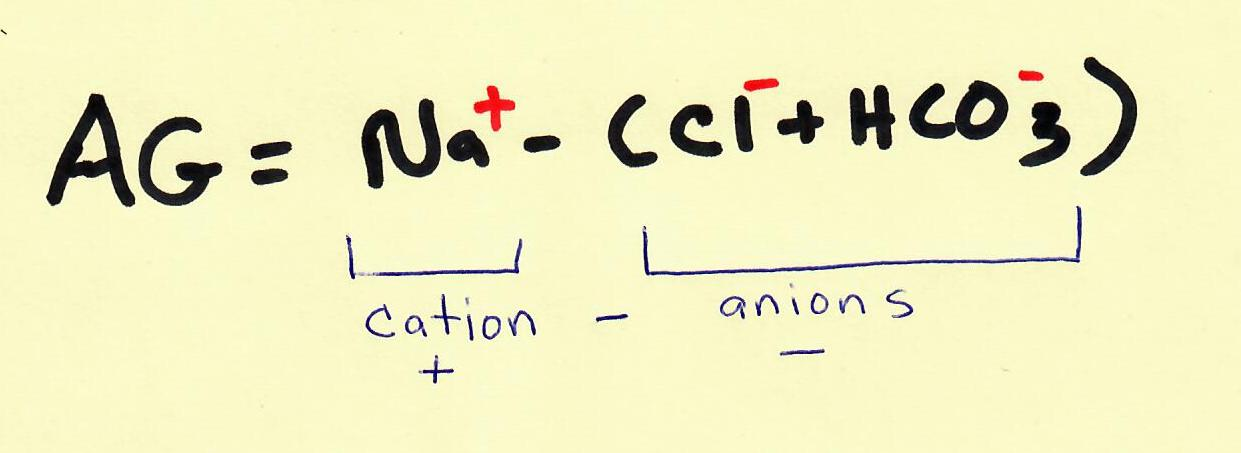 AG = Na⁺ - (Cl⁻ + HCO₃⁻)
cation - anions
+ -